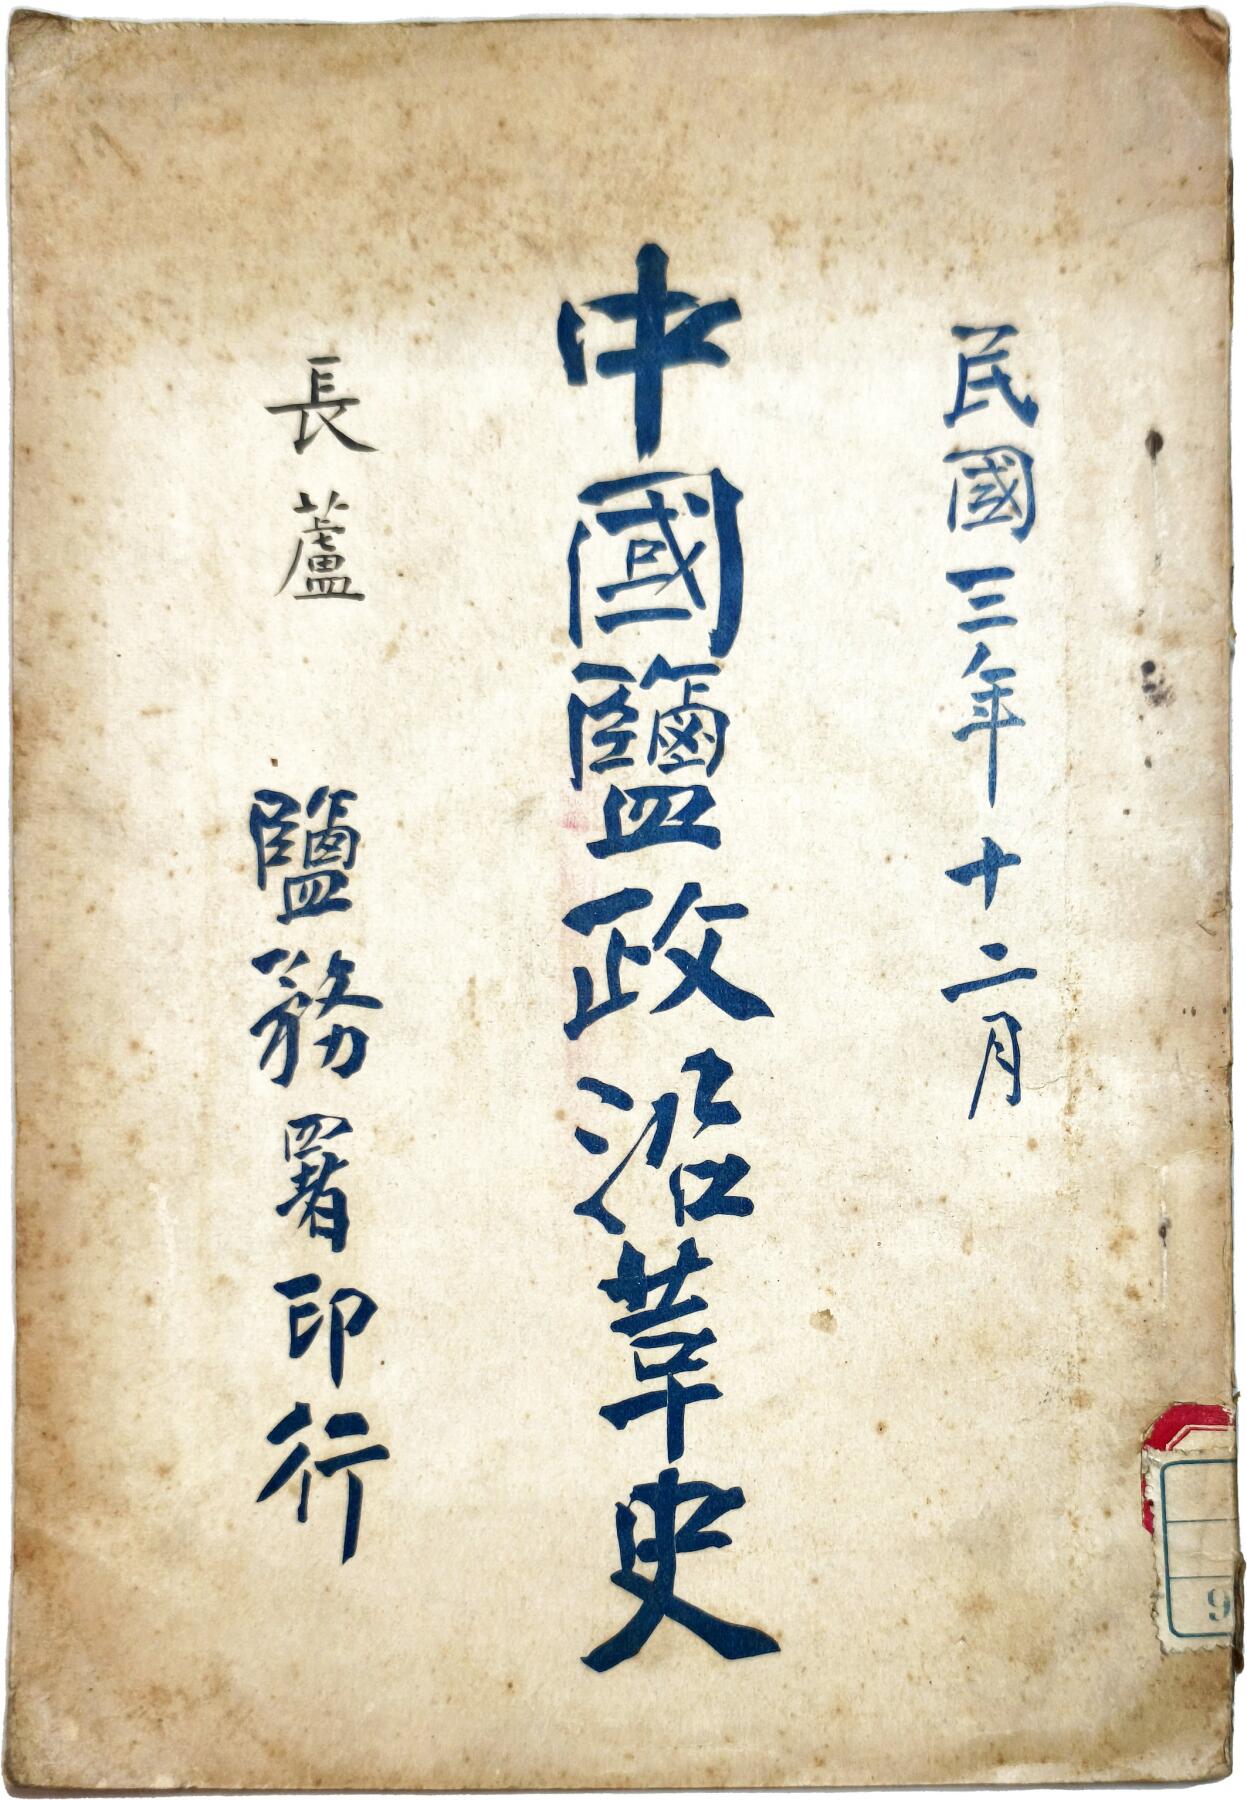 民國三年十二月
中國鹽政沿革史
長蘆
鹽務署印行
9